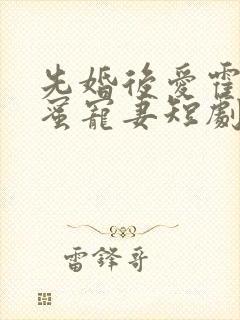 先婚後愛霍
蜜寵妻短劇
雷鋒哥